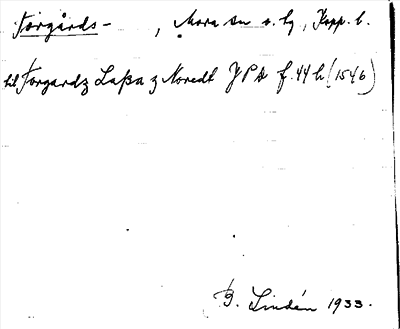 Torgårds- , Mora sn o. hg, Kopp. l.
til Torgardz Laßa z Noredt J P A f. 44 h (1546)
B. Lindén 1933.